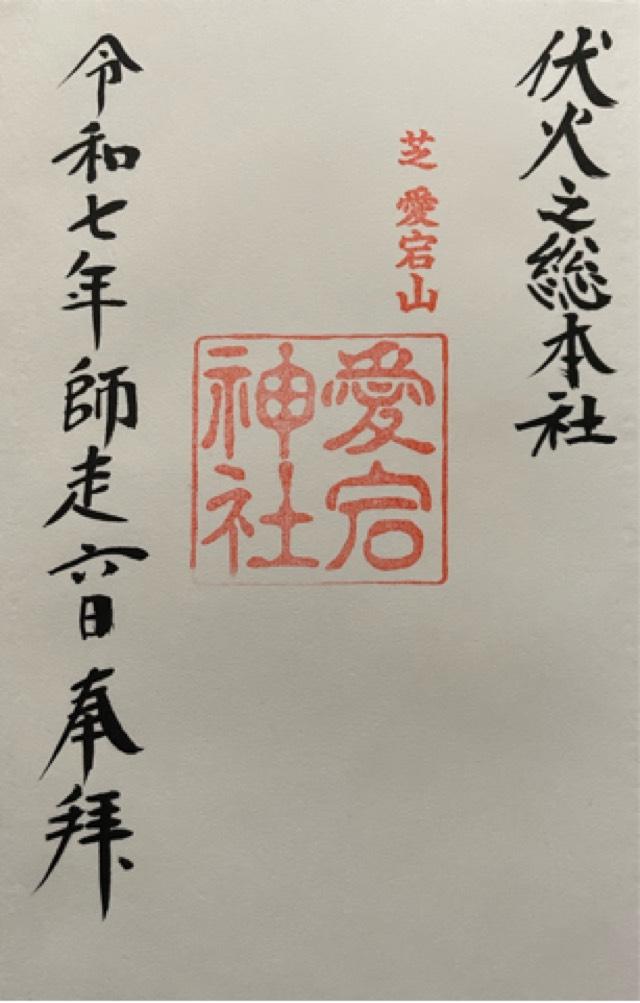 伏火之総本社
芝 愛宕山
愛宕
神社
令和七年師走六日奉拝